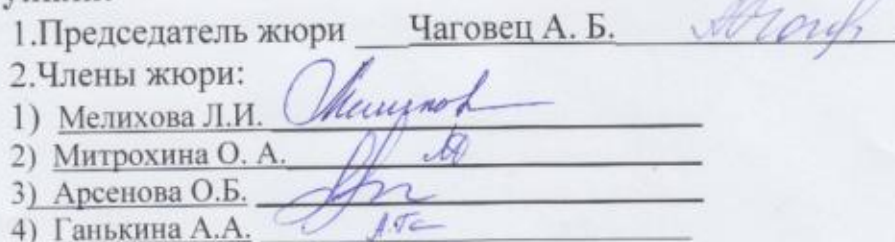 1.Председатель жюри Чаговец А. Б.
2.Члены жюри:
1) Мелихова Л.И.
2) Митрохина О. А.
3) Арсенова О.Б.
4) Ганькина А.А.